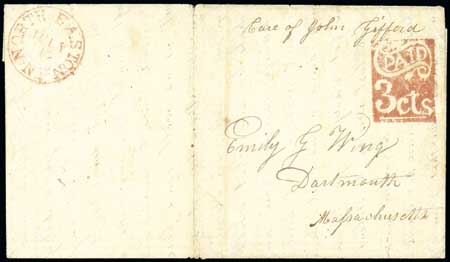 NORTH EASTON
Care of John Gifford
PAID
3 cts
Emily G Wing
Dartmouth
Massachusetts